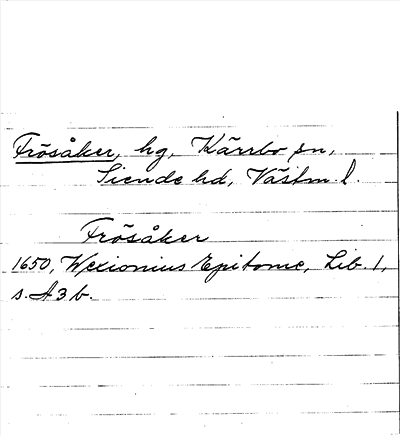 Frösåker, hg, Kärrbo sn,
Siende hd, Västm. l.
Frösåker
1650, Wexionius Epitome, Lib. 1,
s. A 3 b.